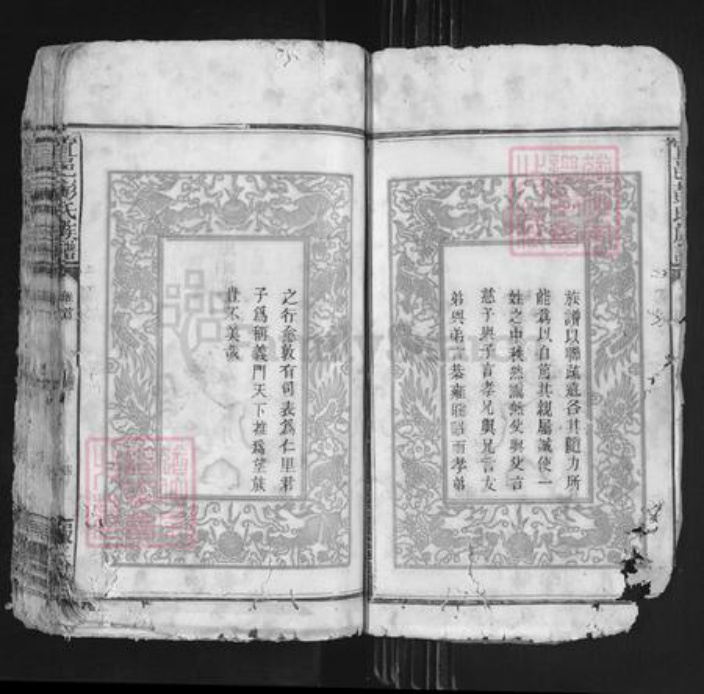 族譜以聯疏遠各其隨力所
能爲以自篤其親屬誠使一
姓之中秩然藹然父與父言
慈子與子言孝兄與兄言友
弟與弟言恭雍睦昭而孝弟
之行愈敦有司表爲仁里君
子爲稱義門天下推爲望族
豈不美哉
邑彭氏族譜
卷首